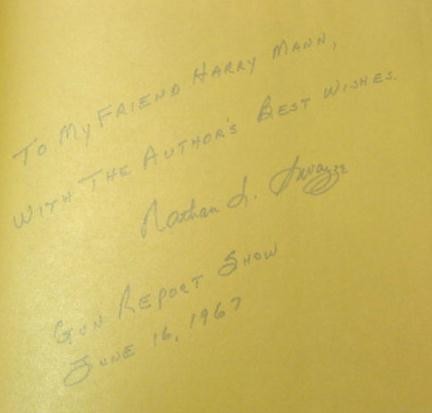 TO MY FRIEND HARRY MANN,
WITH THE AUTHOR'S BEST WISHES.
Nathan L. Swayze
GUN REPORT SHOW
JUNE 16, 1967